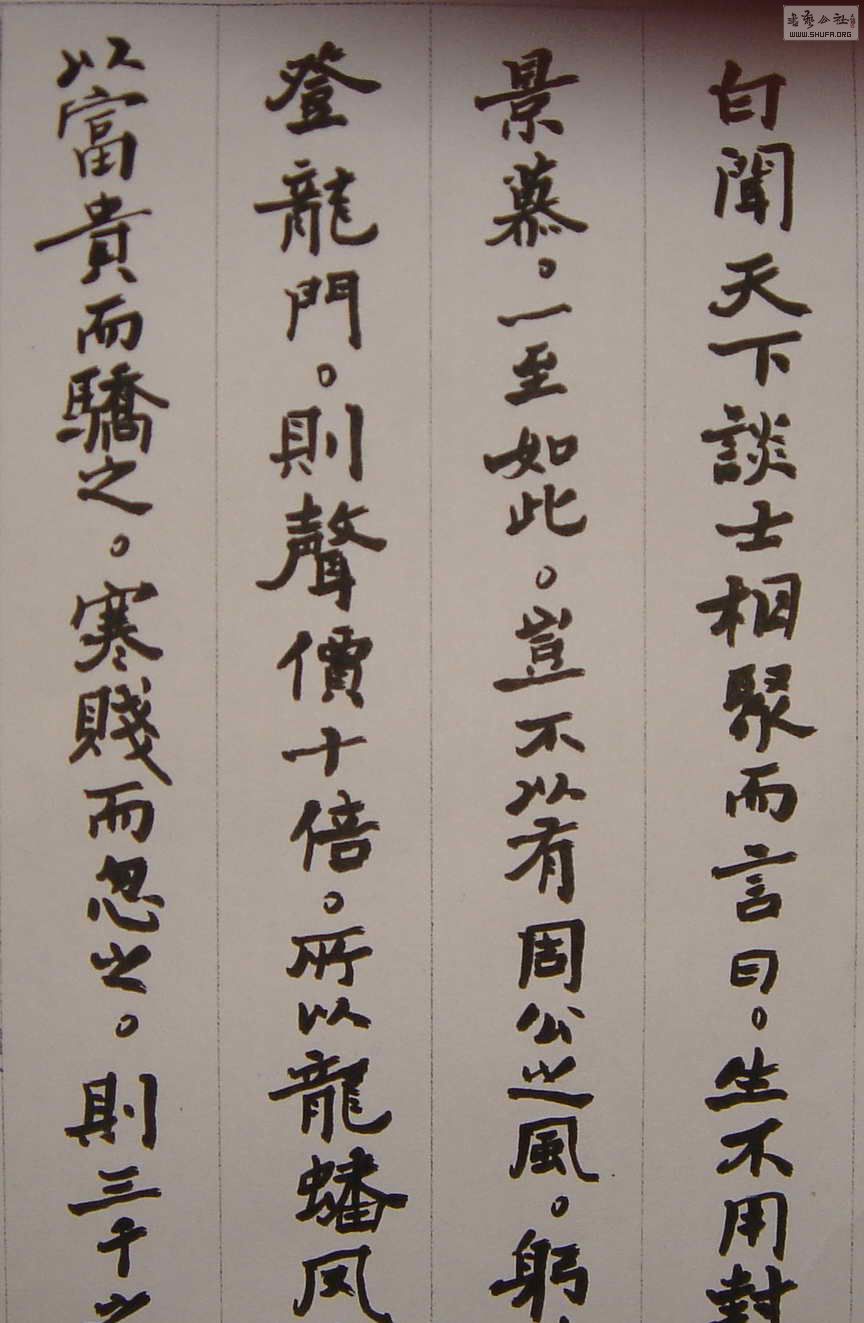 白聞天下談士相聚而言曰。生不用封
景慕。一至如此。豈不以有周公之風。躬
登龍門。則聲價十倍。所以龍蟠鳳
以富貴而驕之。寒賤而忽之。則三千之
WWW.SHUFA.ORG